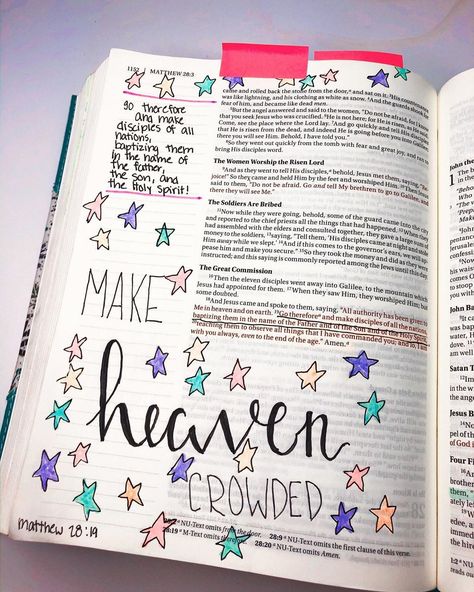 1152 | MATTHEW 28:3
go therefore
and make
disciples of all
nations,
baptizing them
in the name of
the father,
the son, and
the Holy Spirit!
came and rolled back the stone from the door, and sat on it.
was like lightning, and his clothing as white as snow. And the guards
fear of him, and became like dead men.
But the angel answered and said to the women, "Do not be afraid, for I
that you seek Jesus who was crucified. He is not here; for He is risen, as
Come, see the place where the Lord lay. And go quickly and tell His
that He is risen from the dead, and indeed He is going before you into
there you will see Him. Behold, I have told you."
So they went out quickly from the tomb with fear and great joy, and ran to
bring His disciples word.
The Women Worship the Risen Lord
And as they went to tell His disciples, behold, Jesus met them, saying, "Re-
joice!" So they came and held Him by the feet and worshiped Him. Then Jesus
said to them, "Do not be afraid. Go and tell My brethren to go to Galilee, and
there they will see Me."
The Soldiers Are Bribed
Now while they were going, behold, some of the guard came into the city
and reported to the chief priests all the things that had happened. When they
had assembled with the elders and consulted together, they gave a large sum of
money to the soldiers, saying, "Tell them, 'His disciples came at night and stole
Him away while we slept.' And if this comes to the governor's ears, we will
make you secure." So they took the money and did as they were
instructed; and this saying is commonly reported among the Jews until this day.
The Great Commission
Then the eleven disciples went away into Galilee, to the mountain which
Jesus had appointed for them. When they saw Him, they worshiped Him; but
some doubted.
And Jesus came and spoke to them, saying, "All authority has been given to
Me in heaven and on earth. Go therefore and make disciples of all the nations,
baptizing them in the name of the Father and of the Son and of the Holy Spirit,
teaching them to observe all things that I have commanded you; and lo, I am
with you always, even to the end of the age." Amen.
MAKE
heaven
CROWDED
NU-Text omits from the door. 28:9 NU-Text omits the first clause of this verse.
M-Text omits 28:20 NU-Text omits Amen.
matthew 28:19